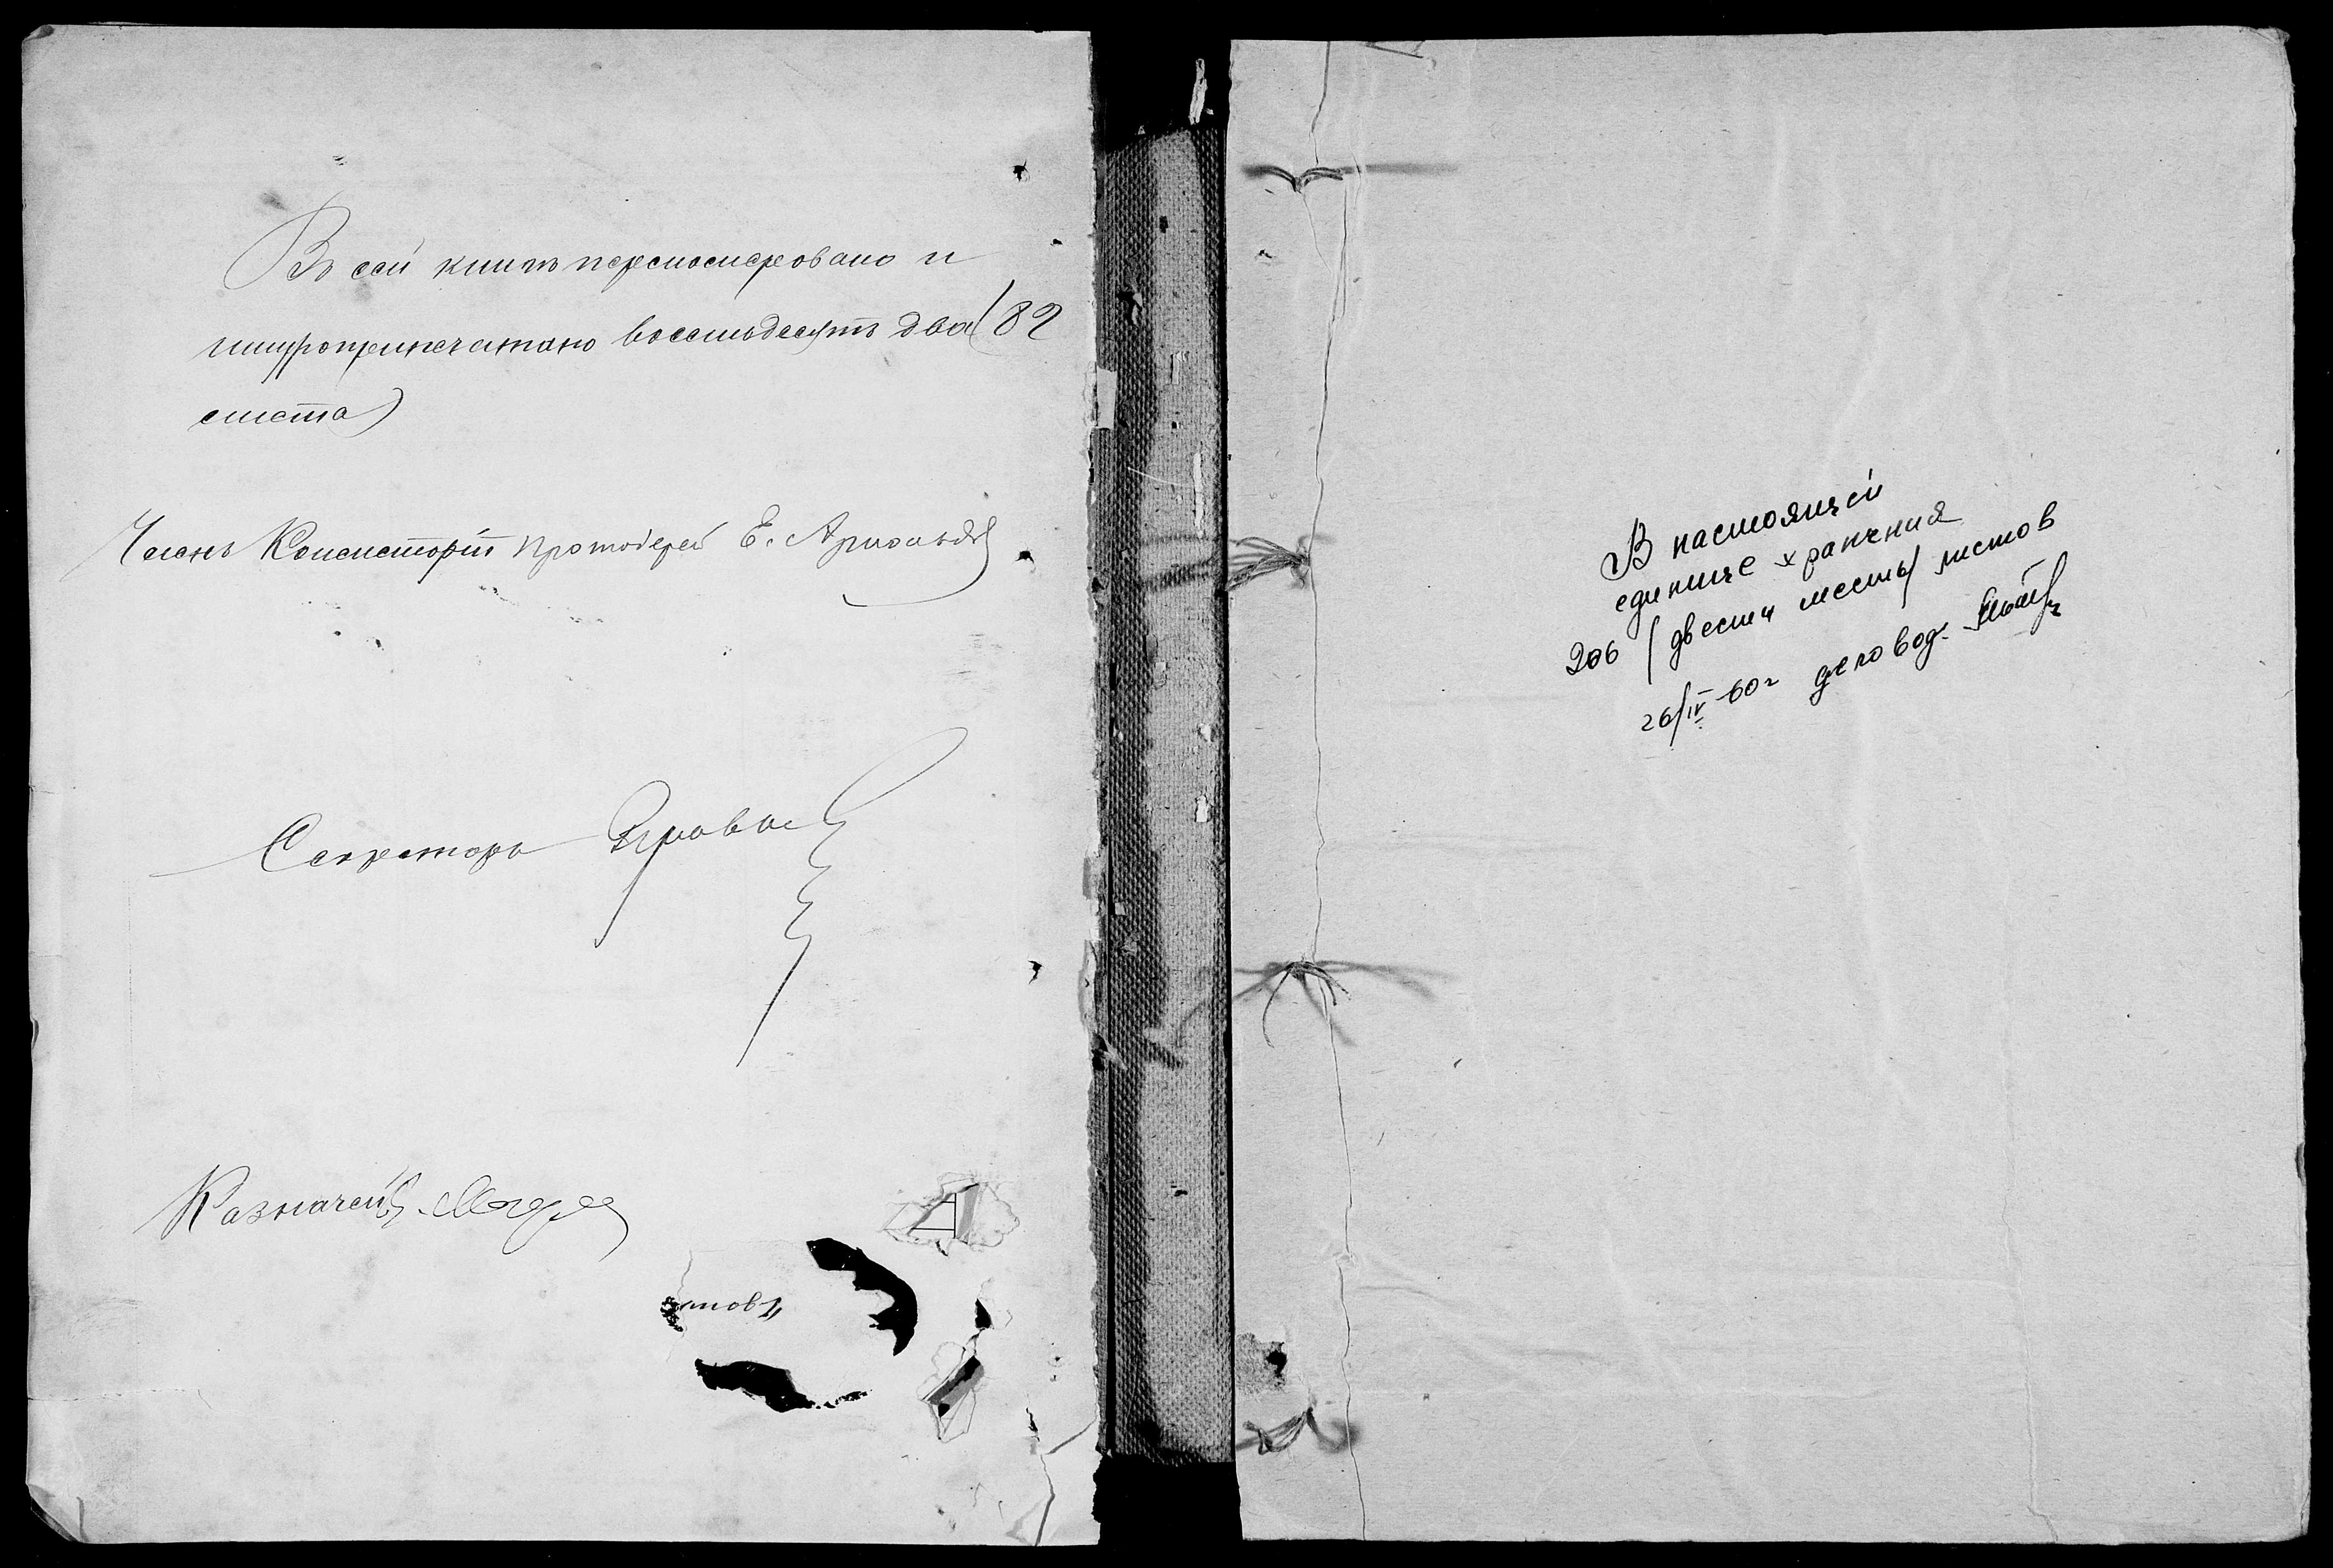 Въ сей книгѣ перенумеровано и
шнуроприпечатано восемьдесятъ два (82
листа)
Членъ Консисторіи Протоіерей Е.
Секретарь
Казначей
В настоящей
единице хранения
206 (двести шесть) листов
26/IV-60г деловод.